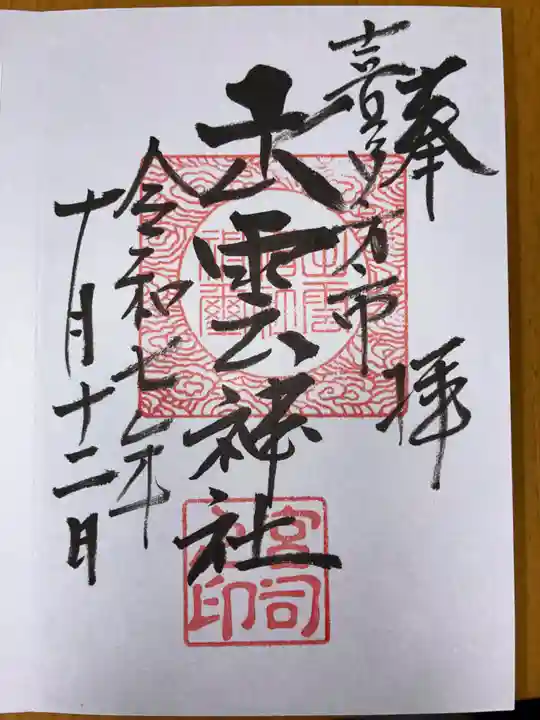 奉拝
喜多方市
出雲神社
令和七年
十月十二日
宮司
之印